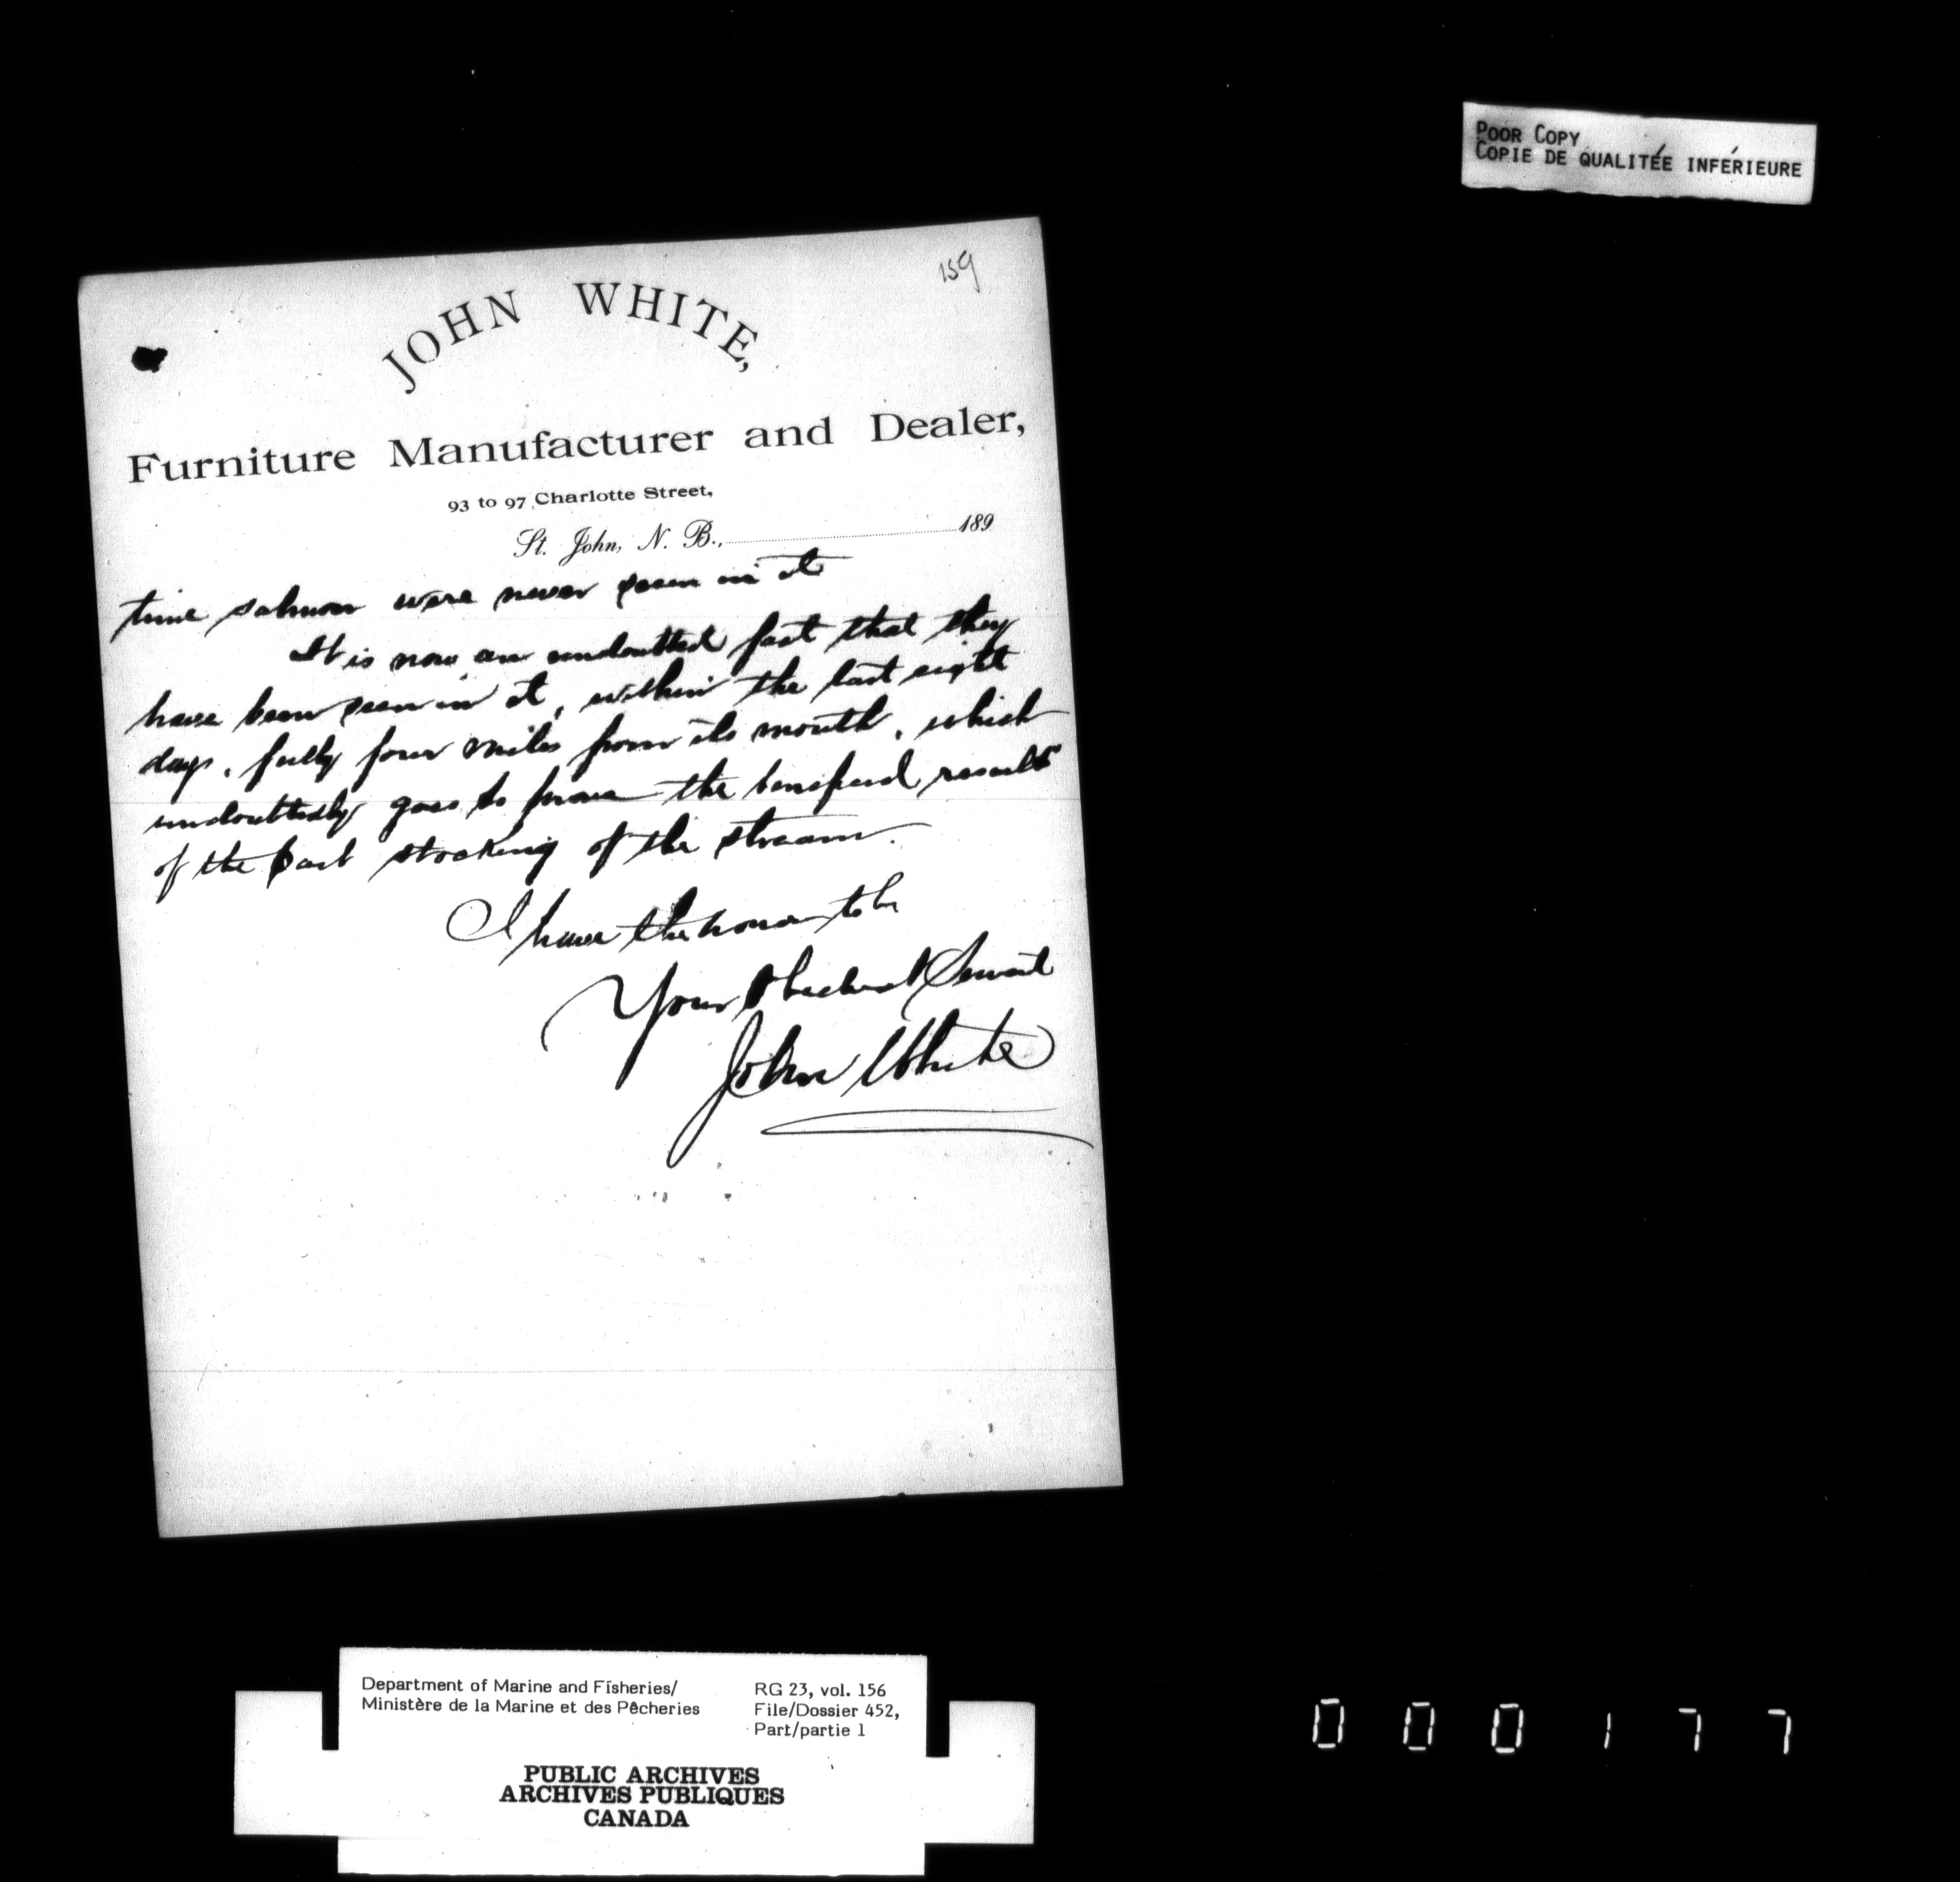 POOR COPY
COPIE DE QUALITÉE INFÉRIEURE
159
JOHN WHITE,
Furniture Manufacturer and Dealer,
93 to 97 Charlotte Street,
St. John, N. B., 189
time salmon were never seen in it
It is now an undoubted fact that they
have been seen in it, within the last eight
days, fully four miles from its mouth, which
undoubtedly goes to prove the results
of the past stocking of the stream.
I have the honor to be
Your Obedient Servant
John White
Department of Marine and Fisheries/
Ministère de la Marine et des Pêcheries
RG 23, vol. 156
File/Dossier 452,
Part/partie 1
PUBLIC ARCHIVES
ARCHIVES PUBLIQUES
CANADA
000177